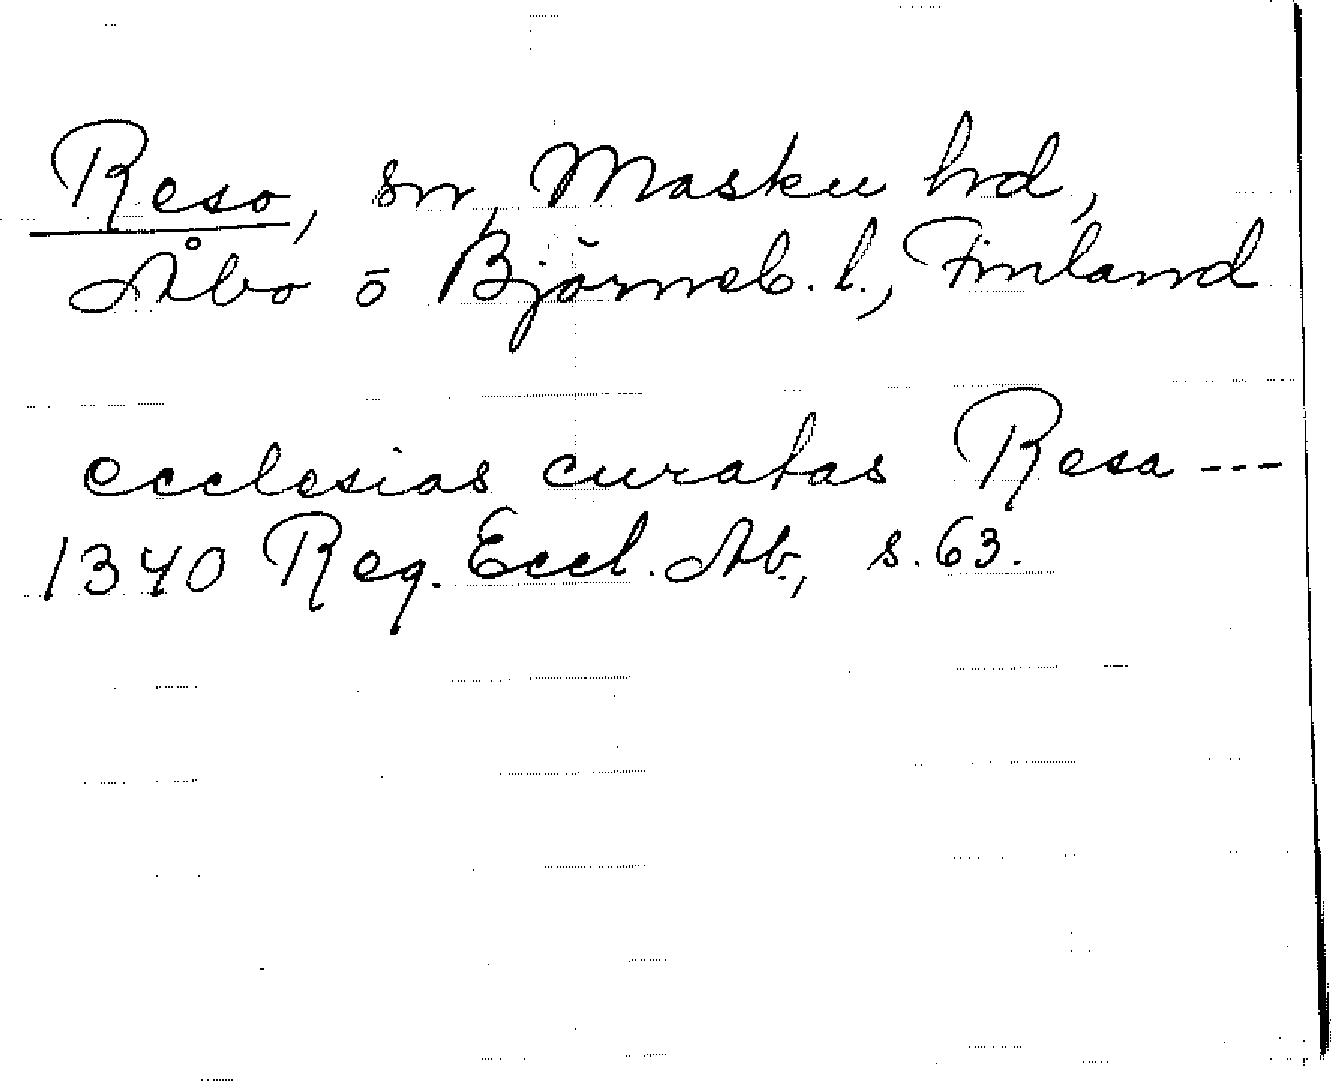 Reso, sn, Masku hd,
Åbo o Björneb. l., Finland
ecclesias curatas Resa ---
1340 Reg. Eccl. Ab., s. 63.